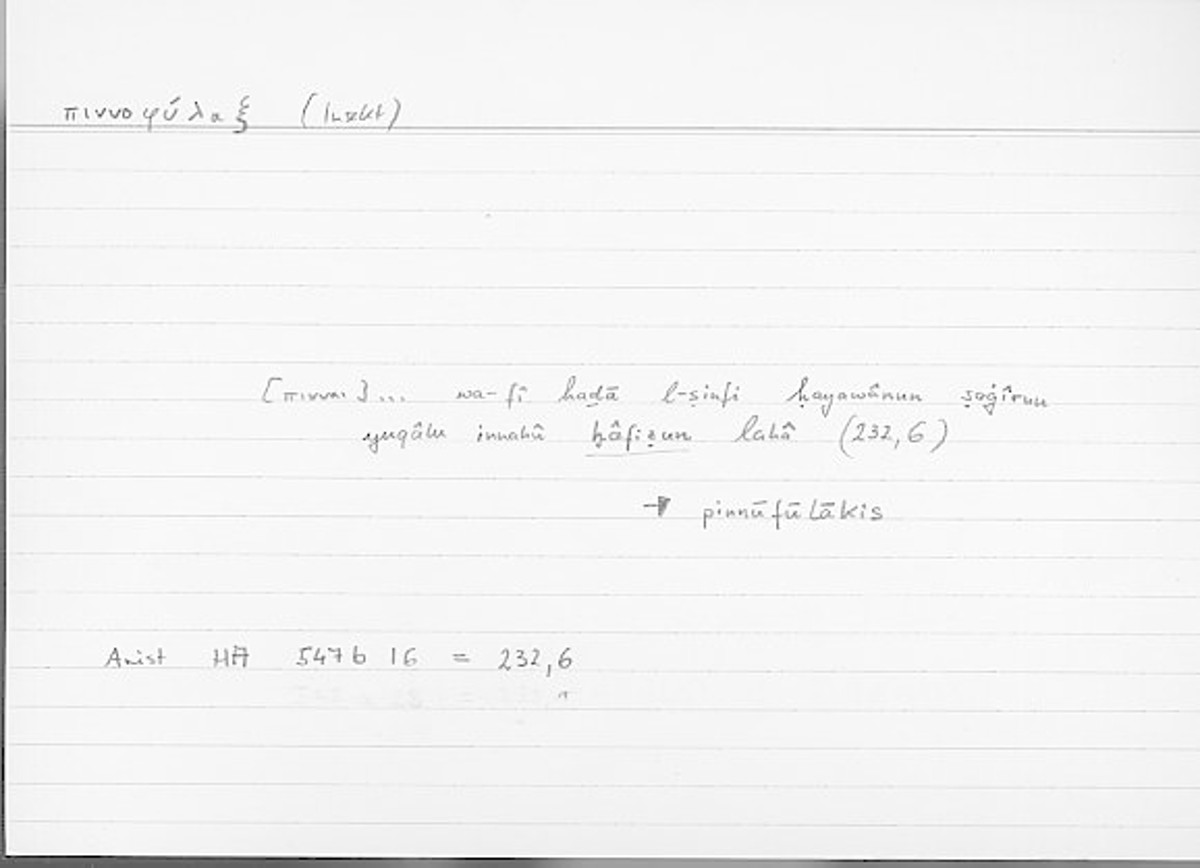 πιννοφύλαξ (Insekt)
[πινναι] ... wa-fî haḏā l-ṣinfi ḥayawânun ṣaġîrun
yuqâlu innahû ḥâfiẓun lahâ (232,6)
→ pinnūfūlākis
Arist HA 547b 16 = 232,6